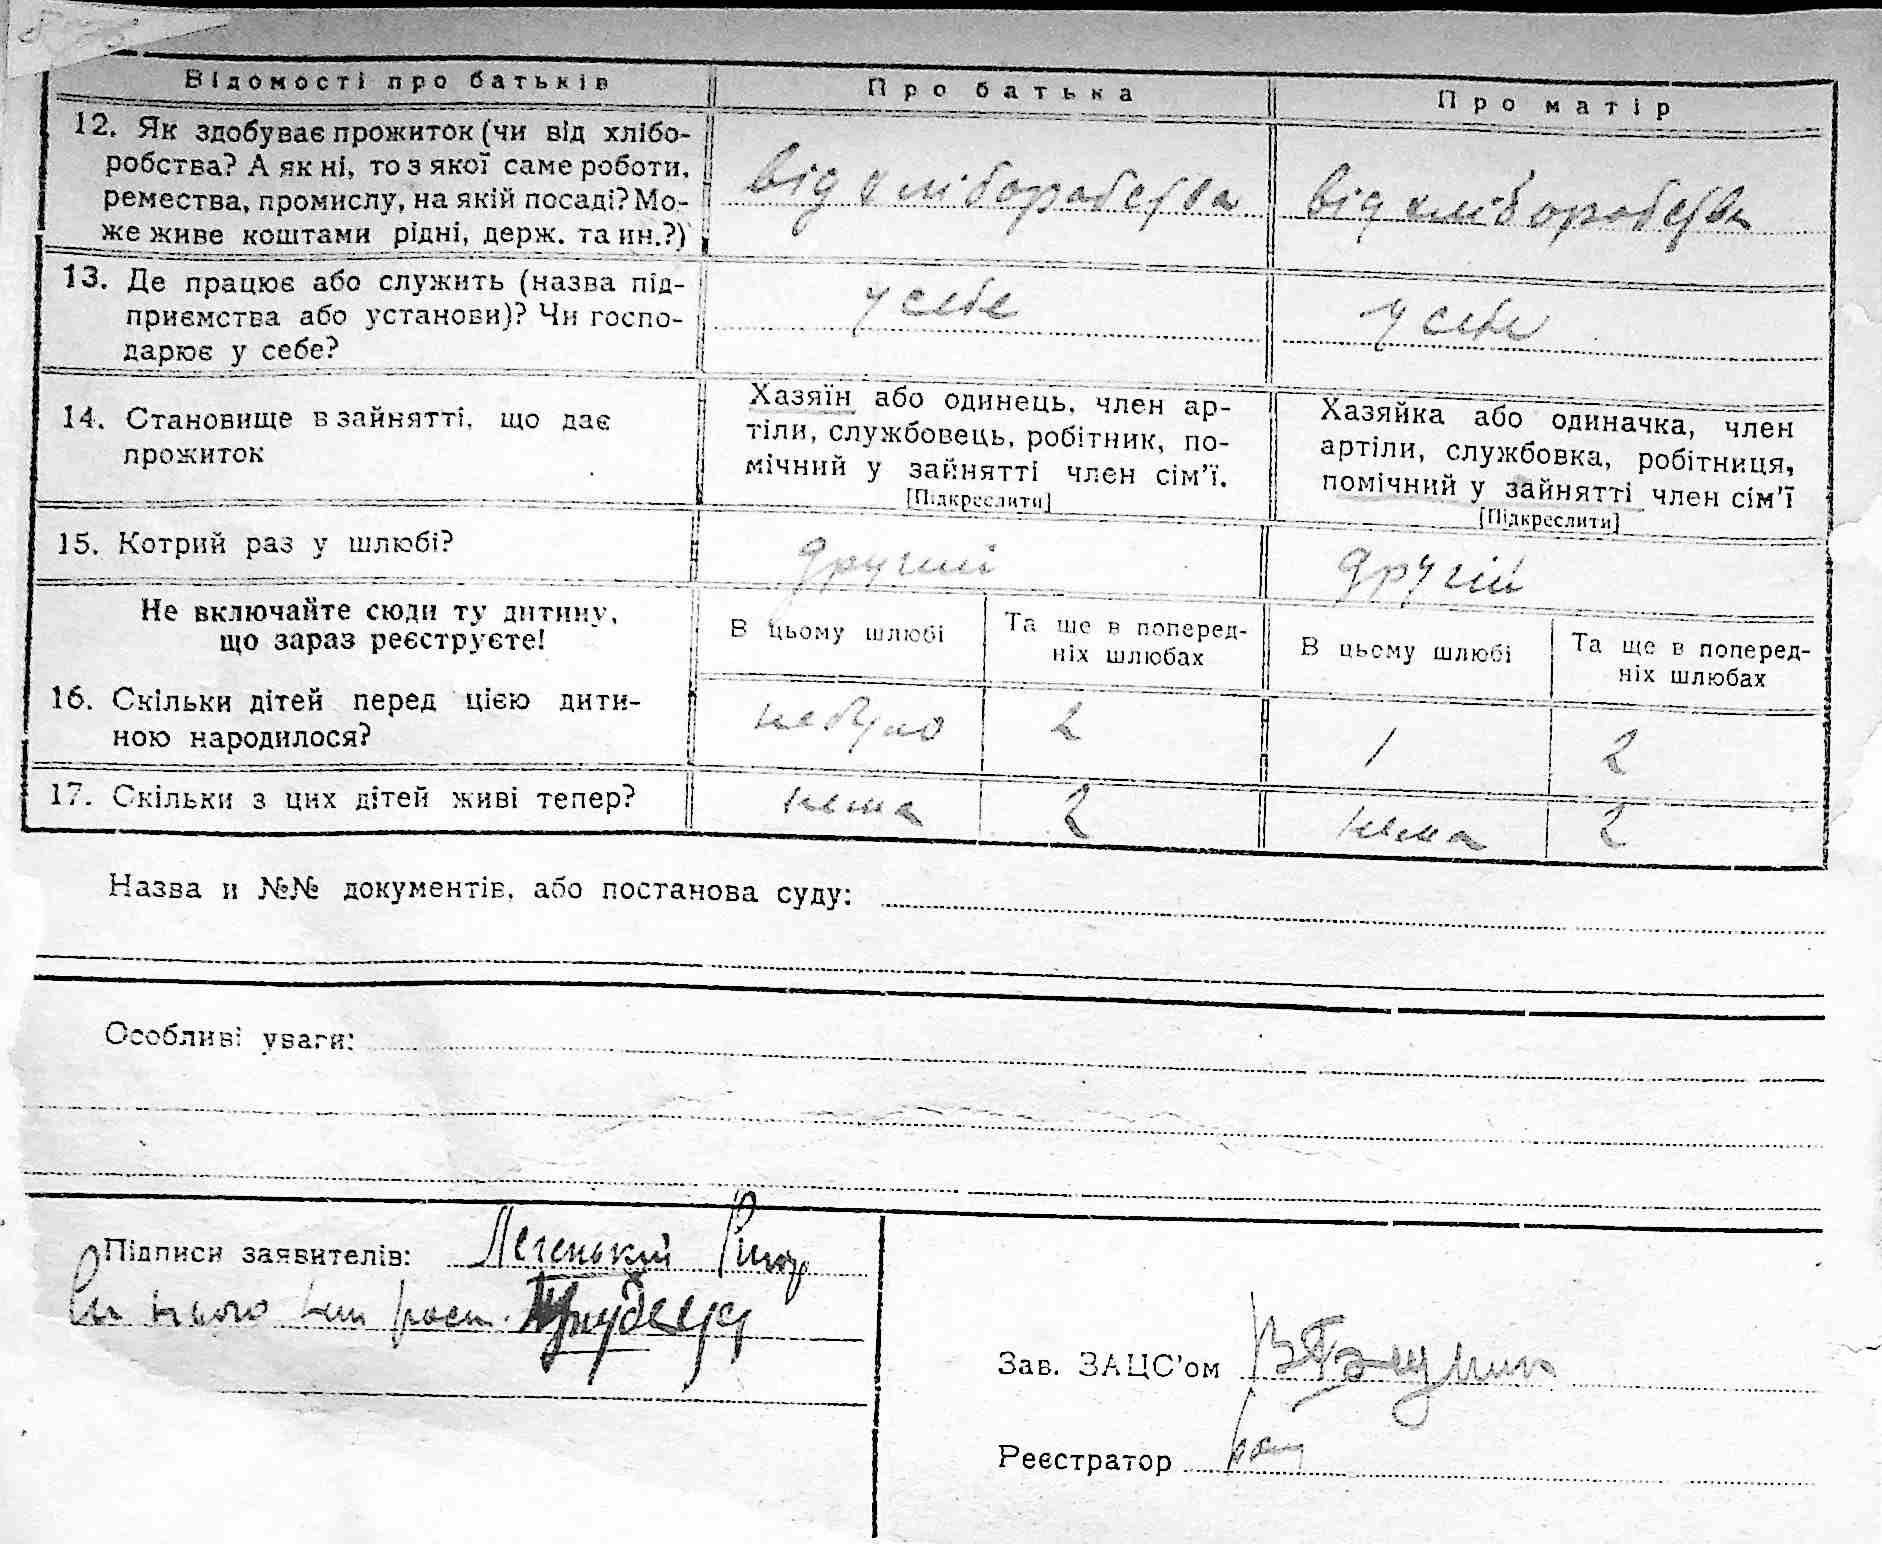 Відомості про батьків Про батька Про матір
12. Як здобуває прожиток (чи від хлібо-
робства? А як ні, то з якої саме роботи,
ремества, промислу, на якій посаді? Мо-
же живе коштами рідні, держ. та ин.?)
від хліборобства
від хліборобства
13. Де працює або служить (назва під-
приємства або установи)? Чи госпо-
дарює у себе?
у себе
у себе
14. Становище в зайнятті, що дає
прожиток
Хазяїн або одинець, член ар-
тіли, службовець, робітник, по-
мічний у зайнятті член сім'ї.
[Підкреслити]
Хазяйка або одиначка, член
артіли, службовка, робітниця,
помічний у зайнятті член сім'ї
[Підкреслити]
15. Котрий раз у шлюбі?
другий
другій
Не включайте сюди ту дитину,
що зараз реєструєте!
В цьому шлюбі
Та ще в поперед-
ніх шлюбах
В цьому шлюбі
Та ще в поперед-
ніх шлюбах
16. Скільки дітей перед цією дити-
ною народилося?
не було 2 1 2
17. Скільки з цих дітей живі тепер?
нема 2 нема 2
Назва и №№ документів, або постанова суду:
Особливі уваги:
Підписи заявителів: Легенький
Зав. ЗАЦС'ом
Реєстратор